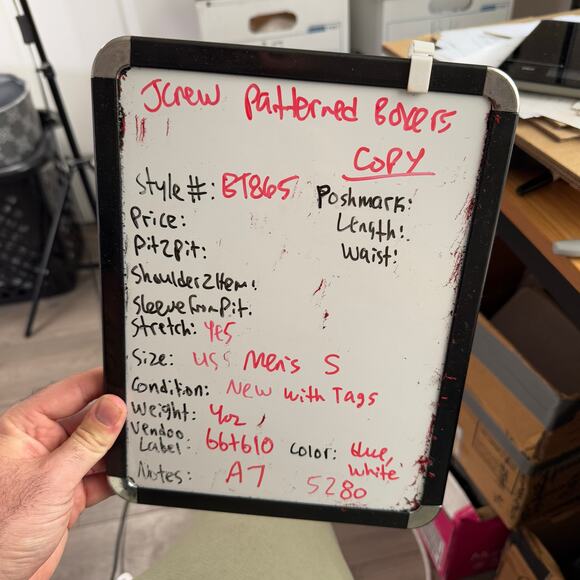 Jcrew Patterned Boxers
COPY
Style#: BT865
Poshmark:
Price:
Length:
Pit2pit:
Waist:
Shoulder2Hem:
Sleeve from Pit:
Stretch: yes
Size: US Men's S
Condition: New with Tags
Weight: 4oz
Vendoo Label: 66+610
Color: blue, white
Notes: A7
5280